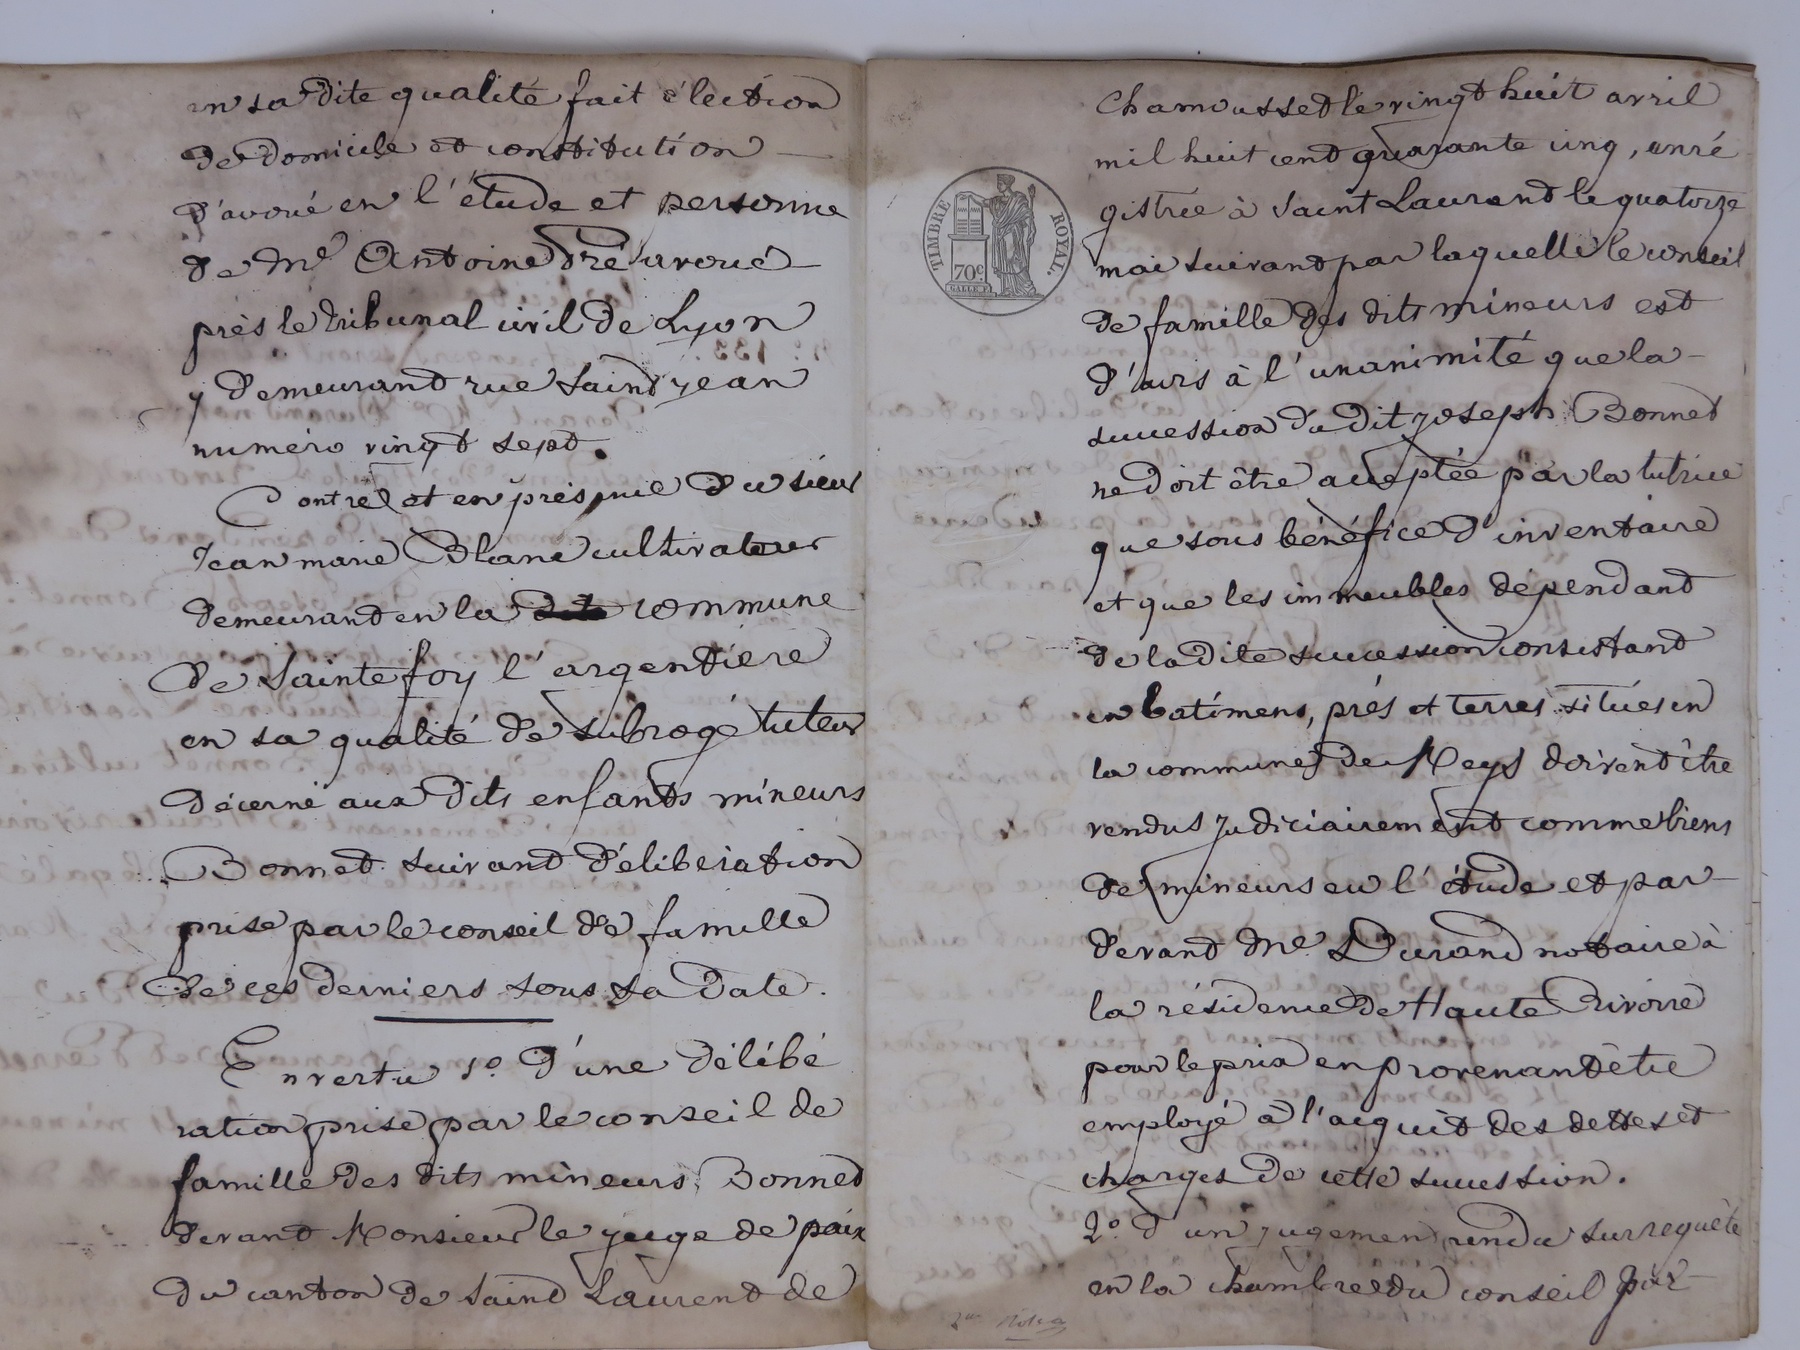 en sa dite qualité fait élection
de domicile et constitution
d'avoué en l'étude et personne
de Me Antoine Dré avoué
près le tribunal civil de Lyon
y demeurant rue Saint jean
numéro vingt sept.
Contre et en présence du sieur
Jean marie Blanc cultivateur
demeurant en la commune
de Sainte foy l'argentière
en sa qualité de subrogé tuteur
décerné aux dits enfants mineurs
Bonnet suivant délibération
prise par le conseil de famille
de ces derniers sous sa date.
En vertu 1o d'une délibé
ration prise par le conseil de
famille des dits mineurs Bonnet
devant Monsieur le juge de paix
du canton de Saint Laurent de
TIMBRE ROYAL.
70c.
GALLE F.
Chamousset le vingt huit avril
mil huit cent quarante cinq, enré
gistrée à Saint Laurent le quatorze
mai suivant par laquelle le conseil
de famille des dits mineurs est
d'avis à l'unanimité que la
succession du dit joseph Bonnet
ne doit être acceptée par la tutrice
que sous bénéfice d'inventaire
et que les immeubles dépendant
de la dite succession consistant
en batimens, prés et terres situés en
la commune de Meys doivent être
vendus judiciairement comme biens
de mineurs en l'étude et par
devant Me. Durand notaire à
la résidence de Haute Rivoire
pour le prix en provenant être
employé à l'acquit des dettes et
charges de cette succession.
2o. d'un jugement rendu sur requête
en la chambre du conseil par